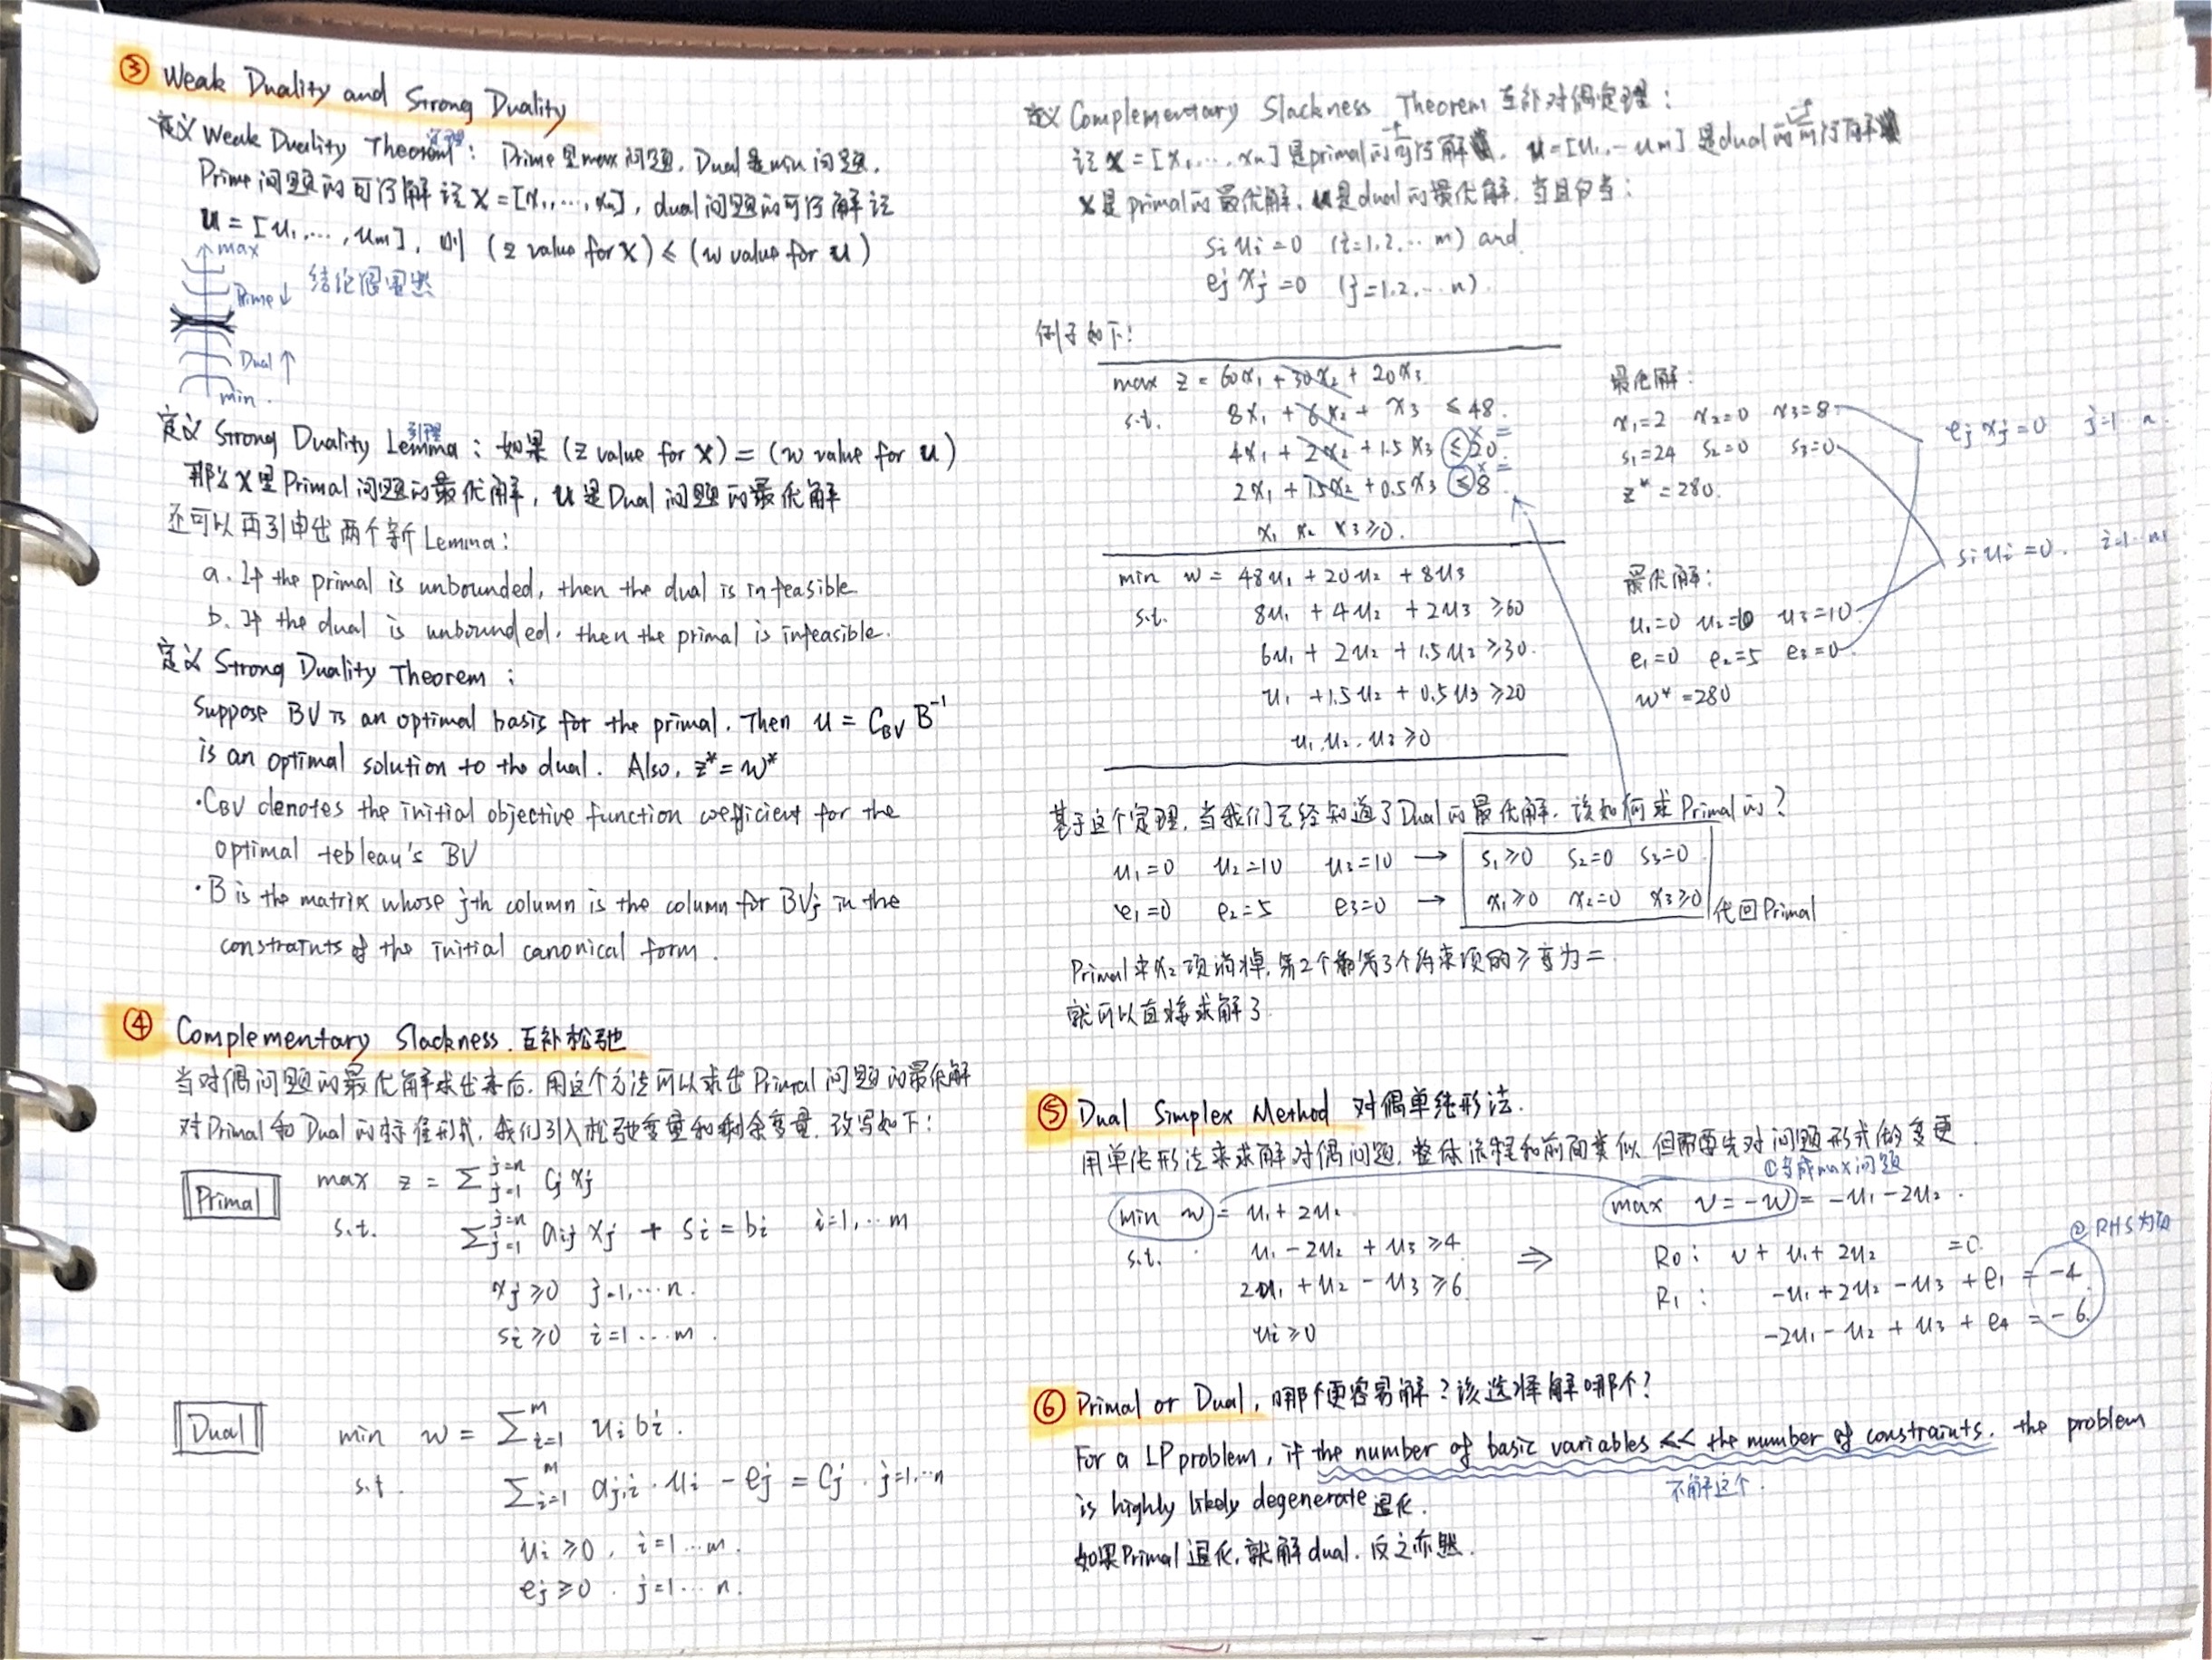 ③ Weak Duality and Strong Duality
定义 Weak Duality Theorem 定理: Prime是max问题, Dual是min问题.
Prime问题的可行解记 x = [x₁, ..., xₙ], dual问题的可行解记
u = [u₁, ..., uₘ], 则 (z value for x) ≤ (w value for u)
max
Prime ↓ 结论很显然
Dual ↑
min.
定义 Strong Duality Lemma 引理: 如果 (z value for x) = (w value for u)
那么 x是Primal问题的最优解, u是Dual问题的最优解
还可以再引申出两个新Lemma:
a. If the primal is unbounded, then the dual is infeasible
b. If the dual is unbounded, then the primal is infeasible.
定义 Strong Duality Theorem:
Suppose BV is an optimal basis for the primal. Then u = C_BV B⁻¹
is an optimal solution to the dual. Also, z* = w*
· C_BV denotes the initial objective function coefficient for the
optimal tebleau's BV
· B is the matrix whose j-th column is the column for BVj in the
constraints of the initial canonical form.
④ Complementary Slackness. 互补松弛
当对偶问题的最优解求出来后, 用这个方法可以求出Primal问题的最优解
对Primal和Dual的标准形式, 我们引入松弛变量和剩余变量, 改写如下:
Primal max z = Σ_{j=1}^{j=n} Cj xj
s.t. Σ_{j=1}^{j=n} aij xj + si = bi i=1, ... m
xj ≥ 0 j=1, ... n.
si ≥ 0 i=1 ... m.
Dual min w = Σ_{i=1}^{m} ui bi.
s.t. Σ_{i=1}^{m} aj,i · ui - ej = Cj. j=1, ... n
ui ≥ 0, i=1 ... m.
ej ≥ 0. j=1 ... n.
定义 Complementary Slackness Theorem 互补对偶定理:
记 x = [x₁, ..., xₙ] 是primal的一个可行解, u = [u₁, ... uₘ] 是dual的一个可行解
x是primal的最优解, u是dual的最优解, 当且仅当:
si ui = 0 (i=1.2. ... m) and
ej xj = 0 (j=1.2. ... n).
例子如下:
max z = 60x₁ + 30x₂ + 20x₃
s.t. 8x₁ + 6x₂ + x₃ ≤ 48.
4x₁ + 2x₂ + 1.5x₃ ≤ 20. × =
2x₁ + 1.5x₂ + 0.5x₃ ≤ 8. × =
x₁ x₂ x₃ ≥ 0.
最优解:
x₁=2 x₂=0 x₃=8
s₁=24 s₂=0 s₃=0
z* = 280.
ej xj = 0 j=1 ... n.
si ui = 0. i=1 ... m
min w = 48u₁ + 20u₂ + 8u₃
s.t. 8u₁ + 4u₂ + 2u₃ ≥ 60
6u₁ + 2u₂ + 1.5u₂ ≥ 30.
u₁ + 1.5u₂ + 0.5u₃ ≥ 20
u₁, u₂, u₃ ≥ 0
最优解:
u₁=0 u₂=10 u₃=10
e₁=0 e₂=5 e₃=0
w* = 280
基于这个定理, 当我们已经知道了Dual的最优解, 该如何求Primal的?
u₁=0 u₂=10 u₃=10 → s₁≥0 s₂=0 s₃=0
e₁=0 e₂=5 e₃=0 → x₁≥0 x₂=0 x₃≥0 代回Primal
Primal中x₂项消掉, 第2个和第3个约束项的≥变为=
就可以直接求解了
⑤ Dual Simplex Method 对偶单纯形法.
用单纯形法来求解对偶问题, 整体流程和前面类似, 但需要先对问题形式做变更
①写成max问题
min w = u₁ + 2u₂ max v = -w = -u₁ - 2u₂.
②RHS为负
s.t. u₁ - 2u₂ + u₃ ≥ 4 ⇒ R0: v + u₁ + 2u₂ = 0.
2u₁ + u₂ - u₃ ≥ 6 R₁: -u₁ + 2u₂ - u₃ + e₁ = -4.
ui ≥ 0 -2u₁ - u₂ + u₃ + e₄ = -6.
⑥ Primal or Dual, 哪个更容易解? 该选择解哪个?
For a LP problem, if the number of basic variables << the number of constraints. the problem
不解这个.
is highly likely degenerate 退化.
如果Primal退化, 就解dual. 反之亦然.